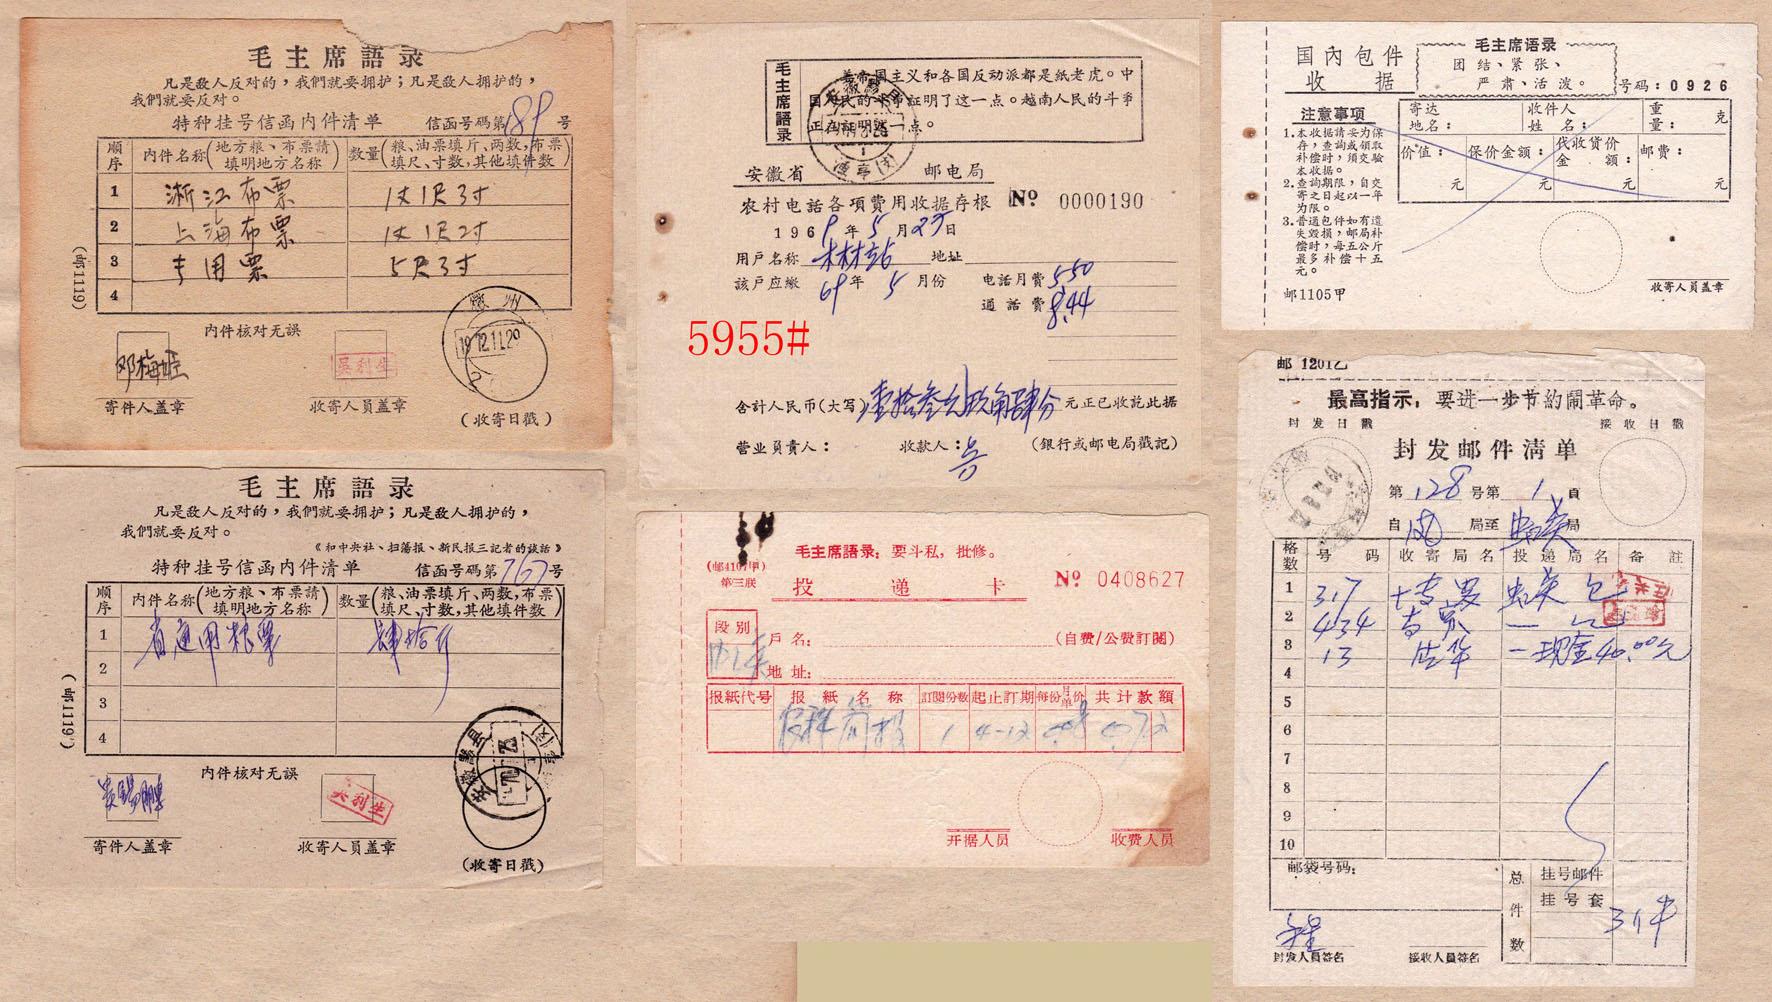 毛主席語录
凡是敌人反对的，我們就要拥护；凡是敌人拥护的，
我們就要反对。
特种挂号信函内件清单 信函号码第189号
順序 内件名称(地方粮、布票請填明地方名称) 数量(粮、油票填斤、两数，布票填尺、寸数，其他填件数)
1 浙江布票 1丈1尺3寸
2 上海布票 1丈1尺2寸
3 专用票 5尺3寸
4
(邮1119)
内件核对无誤
邓梅姬
吳利生
寄件人盖章 收寄人員盖章 (收寄日戳)
徽州
1972.11.20
毛主席語录
凡是敌人反对的，我們就要拥护；凡是敌人拥护的，
我們就要反对。
《和中央社、扫蕩报、新民报三記者的談話》
特种挂号信函内件清单 信函号码第767号
順序 内件名称(地方粮、布票請填明地方名称) 数量(粮、油票填斤、两数，布票填尺、寸数，其他填件数)
1 省通用粮票 肆拾斤
2
3
4
(邮1119)
内件核对无誤
吴利生
寄件人盖章 收寄人員盖章 (收寄日戳)
毛主席語录
美帝国主义和各国反动派都是紙老虎。中
国人民的斗争証明了这一点。越南人民的斗爭
正在証明这一点。
安徽省 邮电局
农村电話各項費用收据存根 № 0000190
1969年5月25日
用戶名称 林站 地址
該戶应繳 69年5月份 电話月費 5.50
通話費 8.44
5955#
合計人民币(大写) 壹拾叁元玖角肆分 元正已收訖此据
营业員責人： 收款人：吴 (銀行或邮电局戳記)
毛主席語录：要斗私，批修。
(邮4107甲)
第三联
投递卡 № 0408627
段别
戶名： (自费/公费訂閱)
地址：
报紙代号 报紙名称 訂閱份数 起止訂期 每份月单价 共计款額
1 4-12
开据人员 收费人员
国内包件
收据
毛主席语录
团结、紧张、
严肃、活泼。
号码：0926
注意事项
1.本收据請妥为保存，查詢或领取补偿时，须交驗本收据。
2.查詢期限，自交寄之日起以一年为限。
3.普通包件如有遗失毁損，邮局补偿时，每五公斤最多补偿十五元。
寄达地名： 收件人姓名： 重量： 克
价值： 元 保价金額： 元 代收貨价金額： 元 邮费： 元
邮1105甲
收寄人员盖章
邮 1201乙
最高指示：要进一步节約鬧革命。
封发日戳 接收日戳
封发邮件清单
第128号第1頁
自 局至 局
格数 号码 收寄局名 投递局名 备註
1 317
2 434
3 13 一现金40.00元
4
5
6
7
8
9
10
邮袋号码：
总件数
挂号邮件
挂号套
3件
封发人员签名 接收人员签名